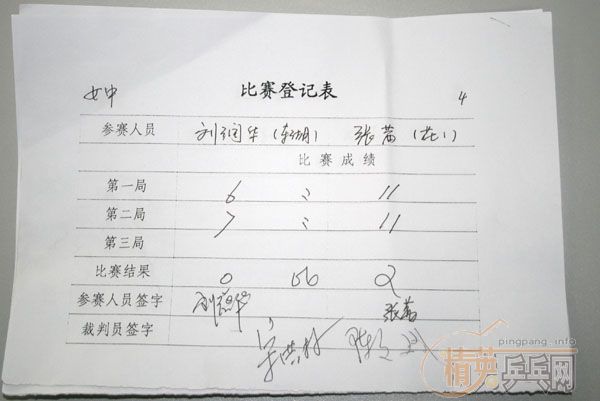 比赛登记表
女中 4
参赛人员 刘润华 张茜
比赛成绩
第一局 6 : 11
第二局 7 : 11
第三局
比赛结果 0 比 2
参赛人员签字 刘润华 张茜
裁判员签字
pingpang.info
精英乒乓网